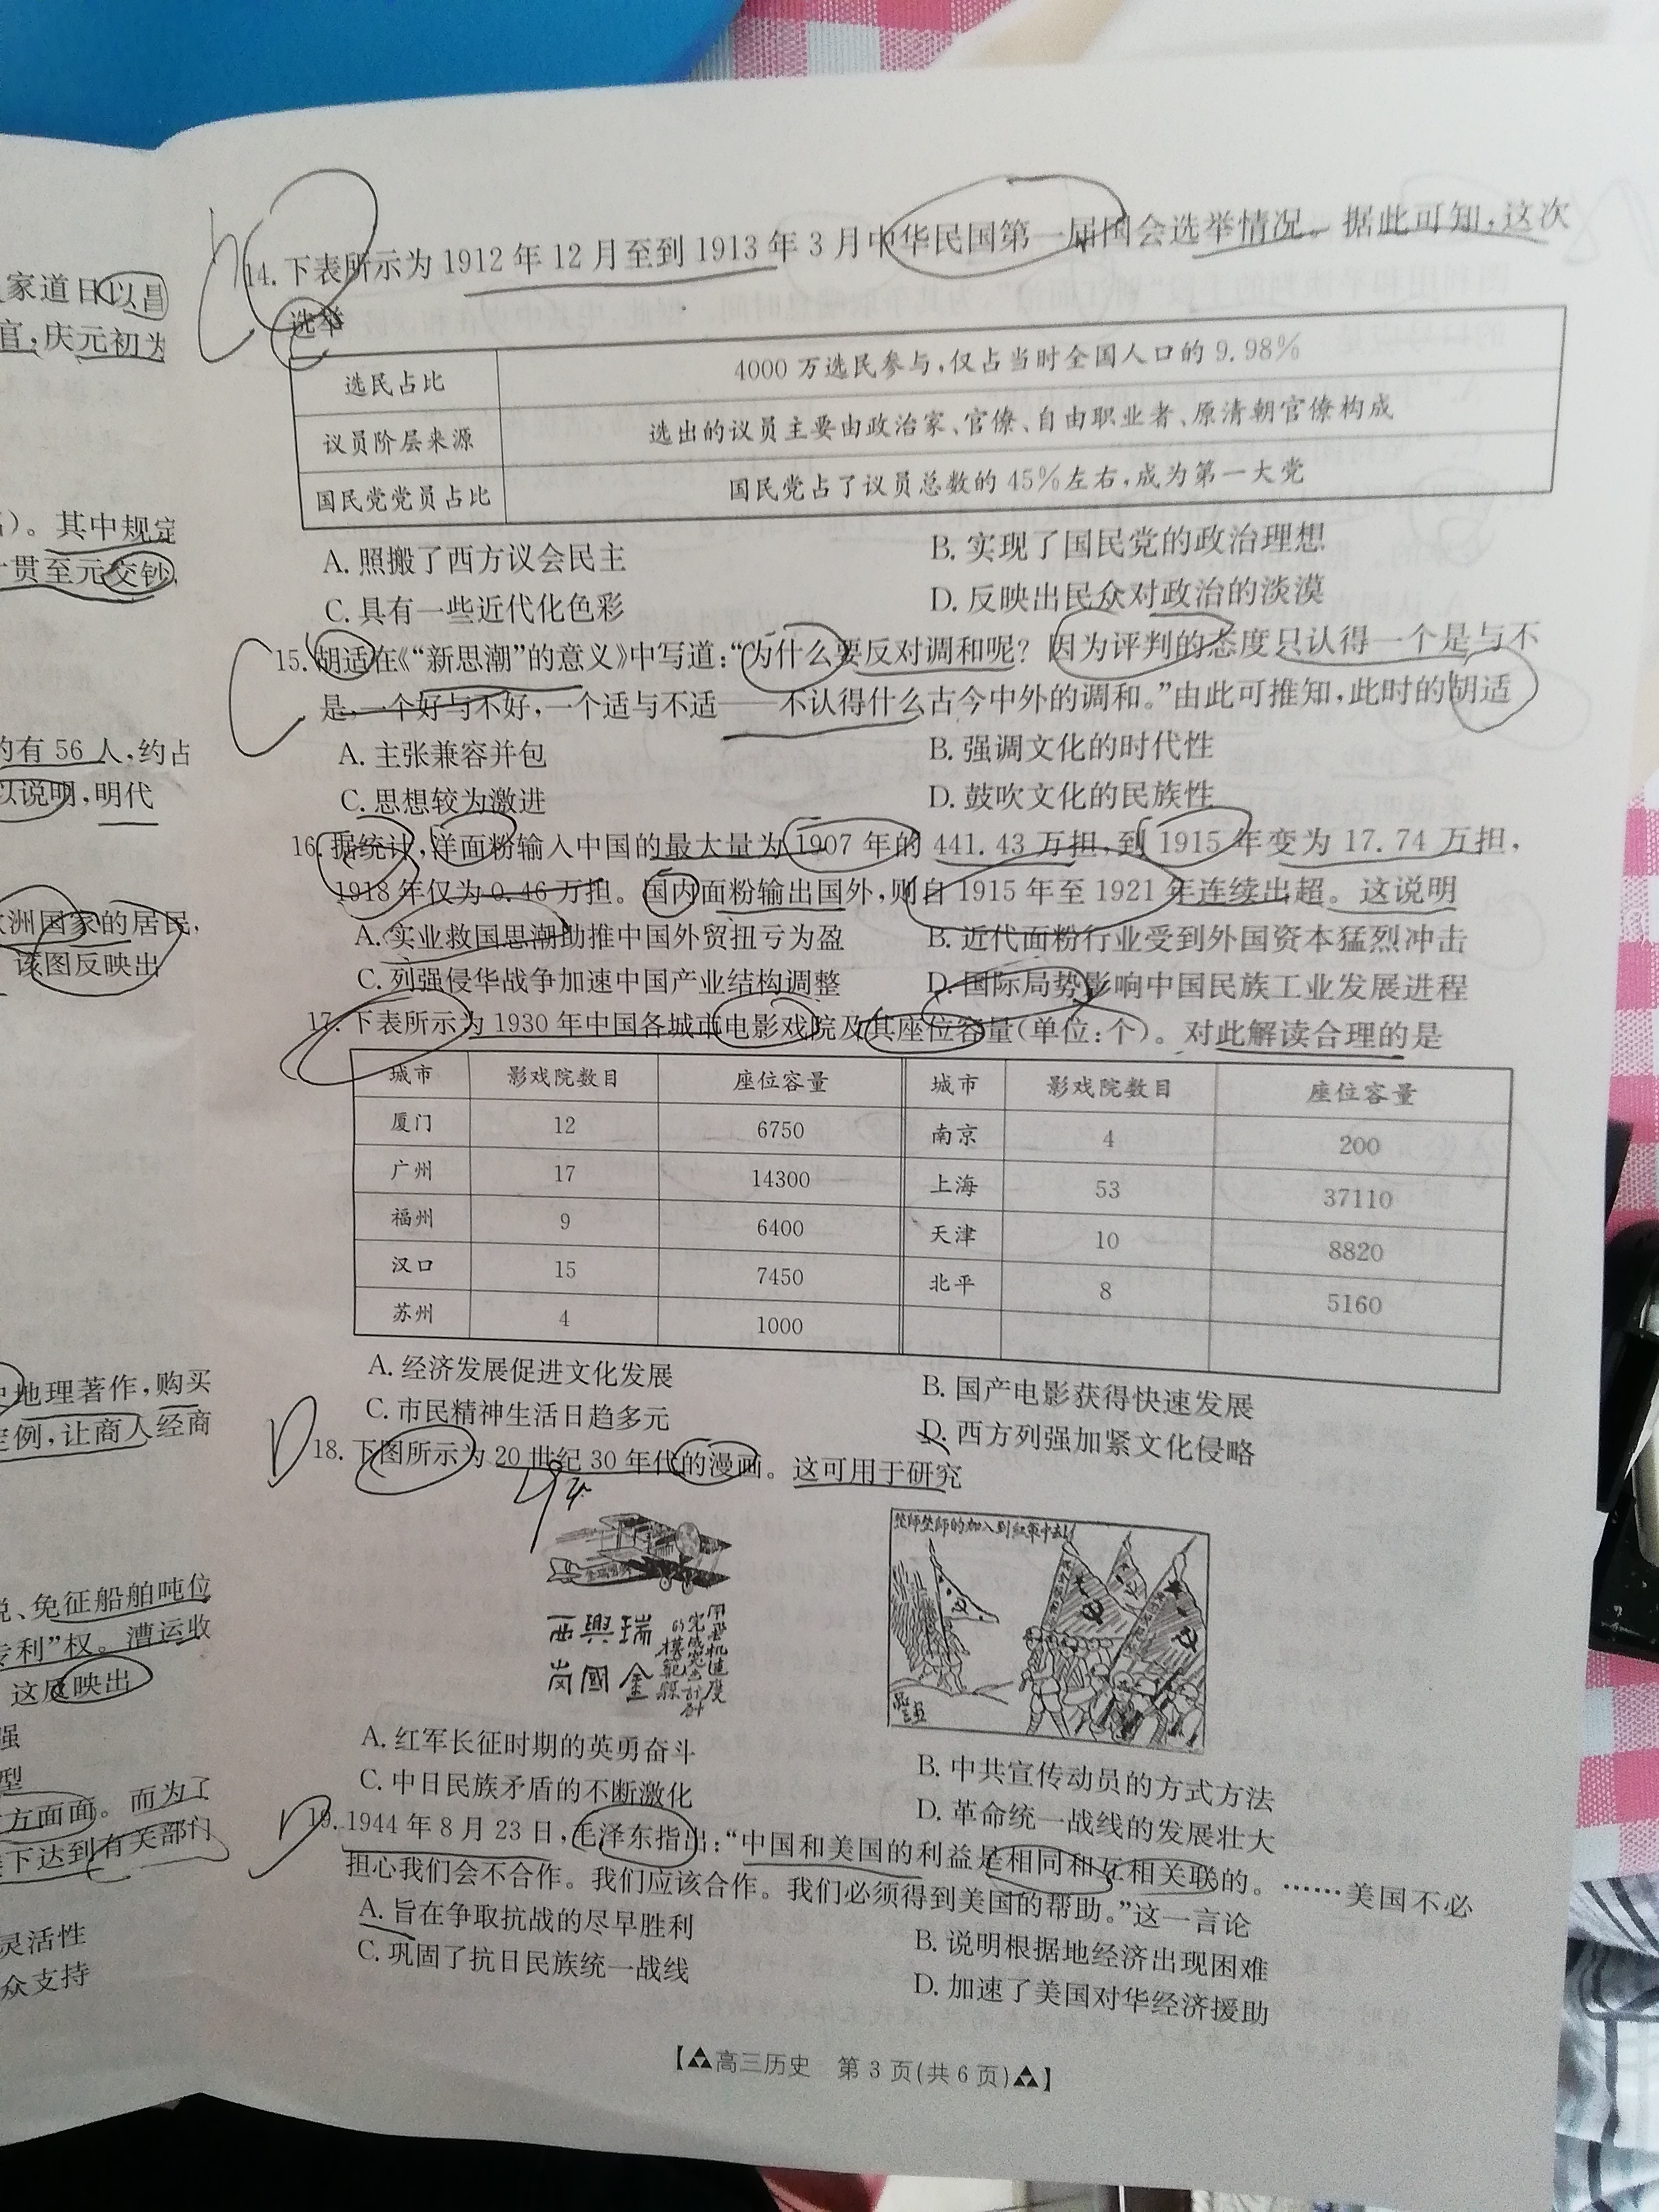 家道日以昌
官,庆元初为
。其中规定
贯至元交钞,
的有 56 人,约占
以说明,明代
洲国家的居民,
该图反映出
地理著作,购买
定例,让商人经商
税、免征船舶吨位
专利”权。漕运收
这反映出
强
型
方面面。而为了
下达到有关部门
灵活性
众支持
14. 下表所示为 1912 年 12 月至到 1913 年 3 月中华民国第一届国会选举情况。据此可知,这次
选举
选民占比 4000 万选民参与,仅占当时全国人口的 9.98%
议员阶层来源 选出的议员主要由政治家、官僚、自由职业者、原清朝官僚构成
国民党党员占比 国民党占了议员总数的 45%左右,成为第一大党
A. 照搬了西方议会民主 B. 实现了国民党的政治理想
C. 具有一些近代化色彩 D. 反映出民众对政治的淡漠
15. 胡适在《“新思潮”的意义》中写道:“为什么要反对调和呢?因为评判的态度只认得一个是与不
是,一个好与不好,一个适与不适——不认得什么古今中外的调和。”由此可推知,此时的胡适
A. 主张兼容并包 B. 强调文化的时代性
C. 思想较为激进 D. 鼓吹文化的民族性
16. 据统计,洋面粉输入中国的最大量为 1907 年的 441.43 万担,到 1915 年变为 17.74 万担,
1918 年仅为 0.46 万担。国内面粉输出国外,则自 1915 年至 1921 年连续出超。这说明
A. 实业救国思潮助推中国外贸扭亏为盈 B. 近代面粉行业受到外国资本猛烈冲击
C. 列强侵华战争加速中国产业结构调整 D. 国际局势影响中国民族工业发展进程
17. 下表所示为 1930 年中国各城市电影戏院及其座位容量(单位:个)。对此解读合理的是
城市 影戏院数目 座位容量 城市 影戏院数目 座位容量
厦门 12 6750 南京 4 200
广州 17 14300 上海 53 37110
福州 9 6400 天津 10 8820
汉口 15 7450 北平 8 5160
苏州 4 1000
A. 经济发展促进文化发展 B. 国产电影获得快速发展
C. 市民精神生活日趋多元 D. 西方列强加紧文化侵略
18. 下图所示为 20 世纪 30 年代的漫画。这可用于研究
西興瑞
岗國金
用飛机速度
完成突击计划
的模範縣
整師整師的加入到紅軍中去!
A. 红军长征时期的英勇奋斗 B. 中共宣传动员的方式方法
C. 中日民族矛盾的不断激化 D. 革命统一战线的发展壮大
19. 1944 年 8 月 23 日,毛泽东指出:“中国和美国的利益是相同和互相关联的。……美国不必
担心我们会不合作。我们应该合作。我们必须得到美国的帮助。”这一言论
A. 旨在争取抗战的尽早胜利 B. 说明根据地经济出现困难
C. 巩固了抗日民族统一战线 D. 加速了美国对华经济援助
【高三历史 第 3 页(共 6 页)】